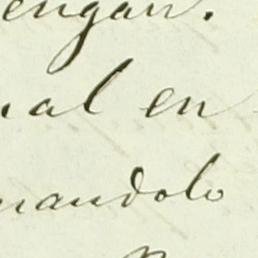 engan.
al en
mandolo